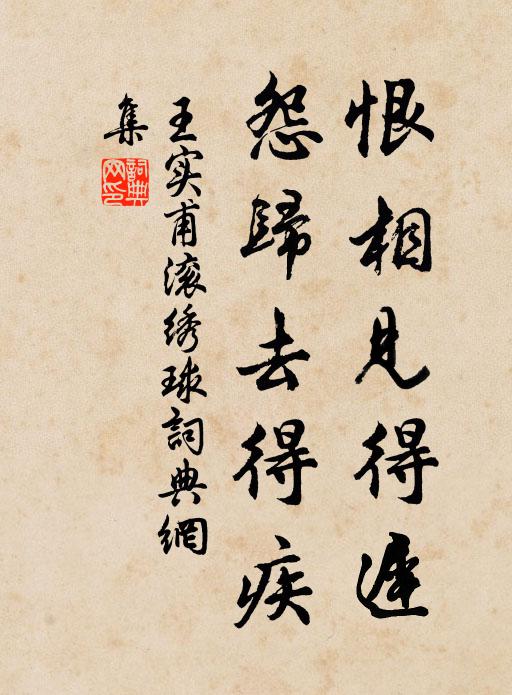 恨相見得遲
怨歸去得疾
王实甫滚绣球詞典網
集
詞典網印